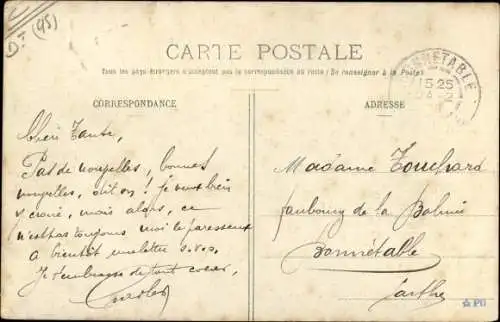 D.T (45)
CARTE POSTALE
Tous les pays étrangers n'acceptent pas la correspondance au recto (Se renseigner à la Poste)
CORRESPONDANCE
ADRESSE
BONNÉTABLE
15 25
Chère Tante,
Pas de nouvelles, bonnes
nouvelles, dit on! je veux bien
y croire, mais alors, ce
n'est pas toujours moi le paresseux
a bientôt une lettre s.v.p.
Je t'embrasse de tout coeur,
Charles
Madame Touchard
faubourg de la
Bonnétable
Sarthe
PG